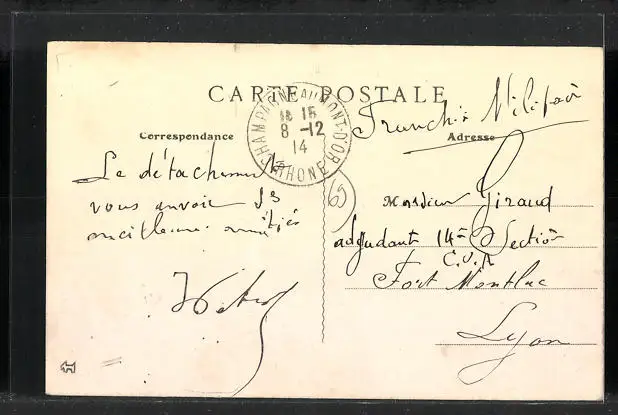 CARTE POSTALE
CHAMPAGNE AU MONT-D'OR
8 -12
14
RHONE
Correspondance
Le détachement
vous envoie ses
meilleures amitiés
Franchise Militaire
Adresse
Monsieur Giraud
adjudant 14e Section
C.O.A
Fort Montluc
Lyon
69